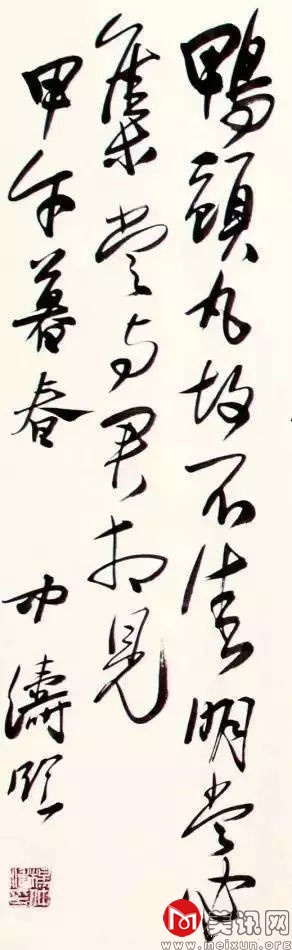 鴨頭丸故不佳明當必
集當与君相見
甲午暮春 濤題
美讯网
www.meixun.org